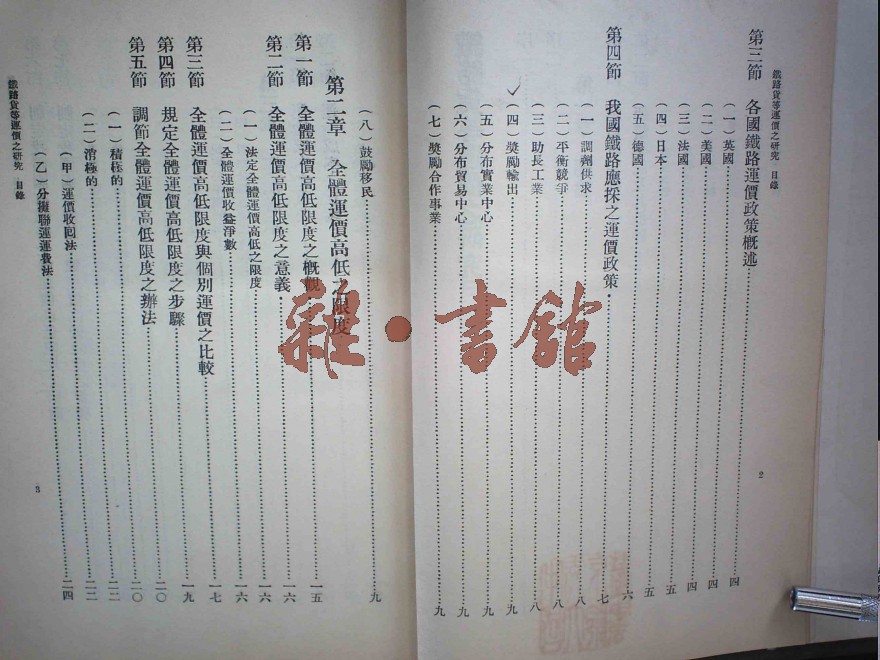 鐵路貨等運價之研究 目錄
第三節 各國鐵路運價政策槪述 四
(一)英國 四
(二)美國 四
(三)法國 四
(四)日本 五
(五)德國 六
第四節 我國鐵路應採之運價政策 七
(一)調劑供求 八
(二)平衡競爭 八
(三)助長工業 八
(四)獎勵輸出 九
(五)分布實業中心 九
(六)分布貿易中心 九
(七)獎勵合作事業 九
2
(八)鼓勵移民 九
第二章 全體運價高低之限度
第一節 全體運價高低限度之槪觀 一五
第二節 全體運價高低限度之意義 一六
(一)法定全體運價高低之限度 一六
(二)全體運價收益淨數 一七
第三節 全體運價高低限度與個別運價之比較 一九
第四節 規定全體運價高低限度之步驟 二〇
第五節 調節全體運價高低限度之辦法 二〇
(一)積極的 二二
(二)消極的 二二
(甲)運價收回法 二四
(乙)分攤聯運運費法
鐵路貨等運價之研究 目錄
3
雜·書館